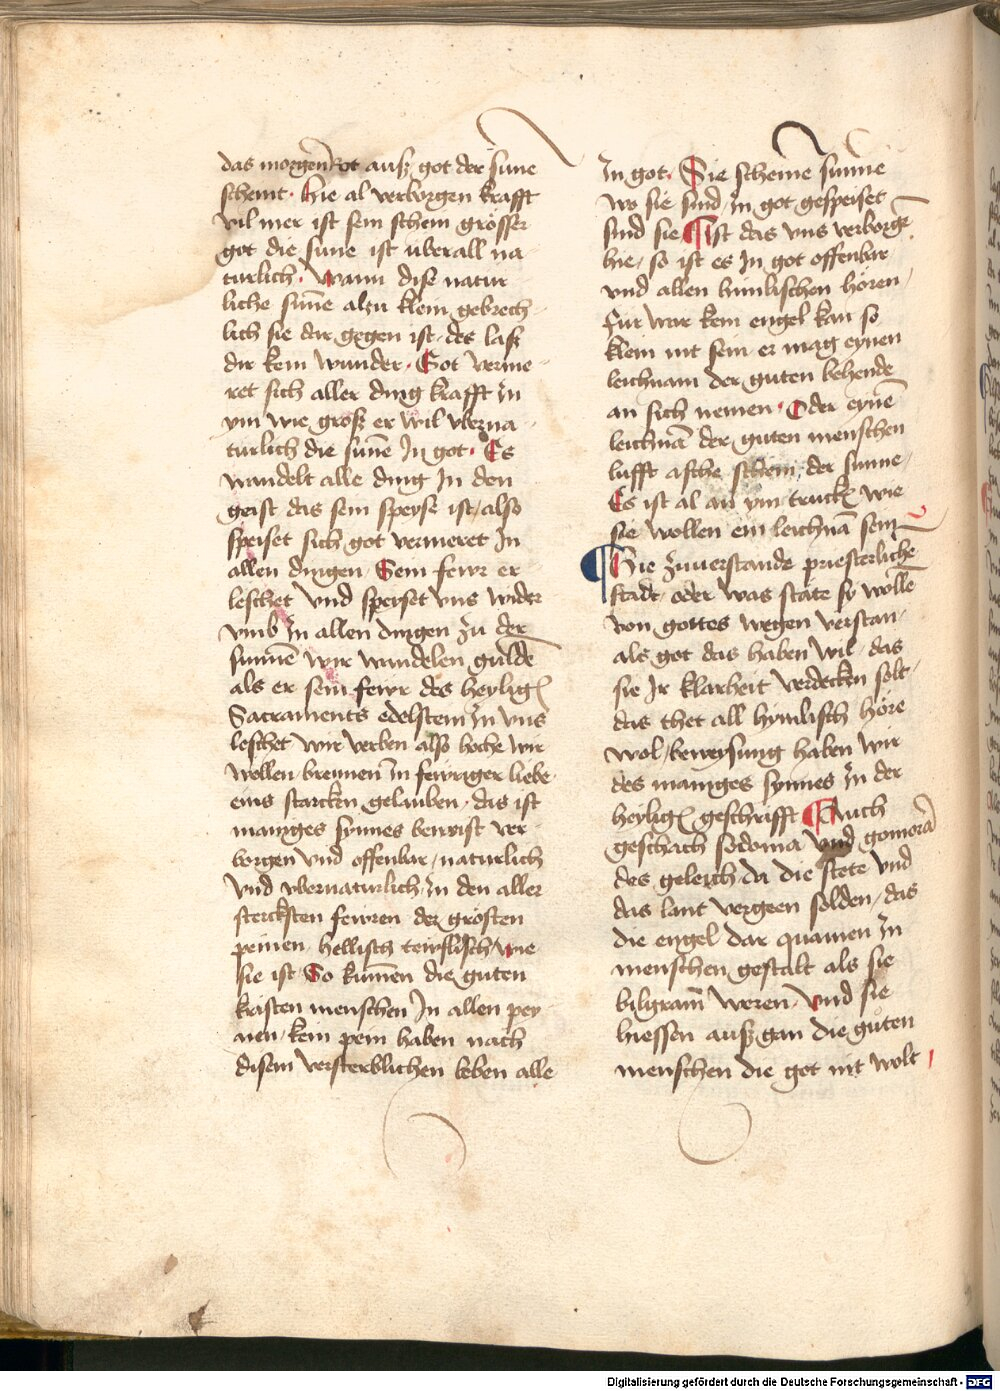 das morgenRot auß got der sune
scheint · Hie al verborgen krafft
vil mer ist sein schein grösser
got die sune ist uberall na
turlich · Wann dise natur
liche suñe alzu klein gebrech
lich sie dar gegen ist · des laß
dir kein wunder · Got verme
ret sich aller ding krafft Jn
ym wie groß er wil vberna
turlich die suñe Jn got · Es
wandelt alle ding Jn den
geist das sein speyse ist / also
speiset sich got vermeret Jn
allen dingen Sein fewr er
leschet vnd speiset vns wider
vmb Jn allen dingen zu der
sunnē wir wandelen gulde
als er sein fewr des heyligē
Sacraments edelstein Jn vns
leschet wir verben also hoche wir
wollen / brennen in fewriger liebe
eins starcken gelauben / das ist
maniges synnes beweist ver
borgen vnd offenbar / naturlich
vnd vbernaturlich Jn den aller
stercksten fewren der grösten
peinen / hellisch tewflisch / wie
sie ist So kumen die guten
kristen menschen Jn allen pey
nen / kein pein haben nach
disem versterblichen leben alle
Jn got · Sie scheinē sunne
wo sie sind / in got gespeiset
sind sie Ist das vns verborgē
hie / so ist es Jn got offenbar
vnd allen himlischen hören /
fur war kein engel kan so
klein nit sein er mag eynen
leichnam der guten behende
an sich nemen · Oder eynē
leichnā der guten menschen
lufft asche schein / der sunne /
Es ist al an ym truckē wie
sie wollen ein leichnā sein
Hie zuuerstande priesterliche
stadt / oder was state sy wolle
von gottes wegen verstan /
als got das haben wil / das
sie Jr klarheit verdecken solt /
das thet all hymlisch höre
wol / beweysung haben wir
des maniges synnes Jn der
heyligē geschrifft Auch
geschach sodoma vnd gomorā
des geleich da die stete vnd
das lant vergeen solden / das
die engel dar quamen Jn
menschen gestalt als sie
bilgram weren / Vnd sie
hiessen auß gan die guten
menschen die got nit wolt
Digitalisierung gefördert durch die Deutsche Forschungsgemeinschaft - DFG